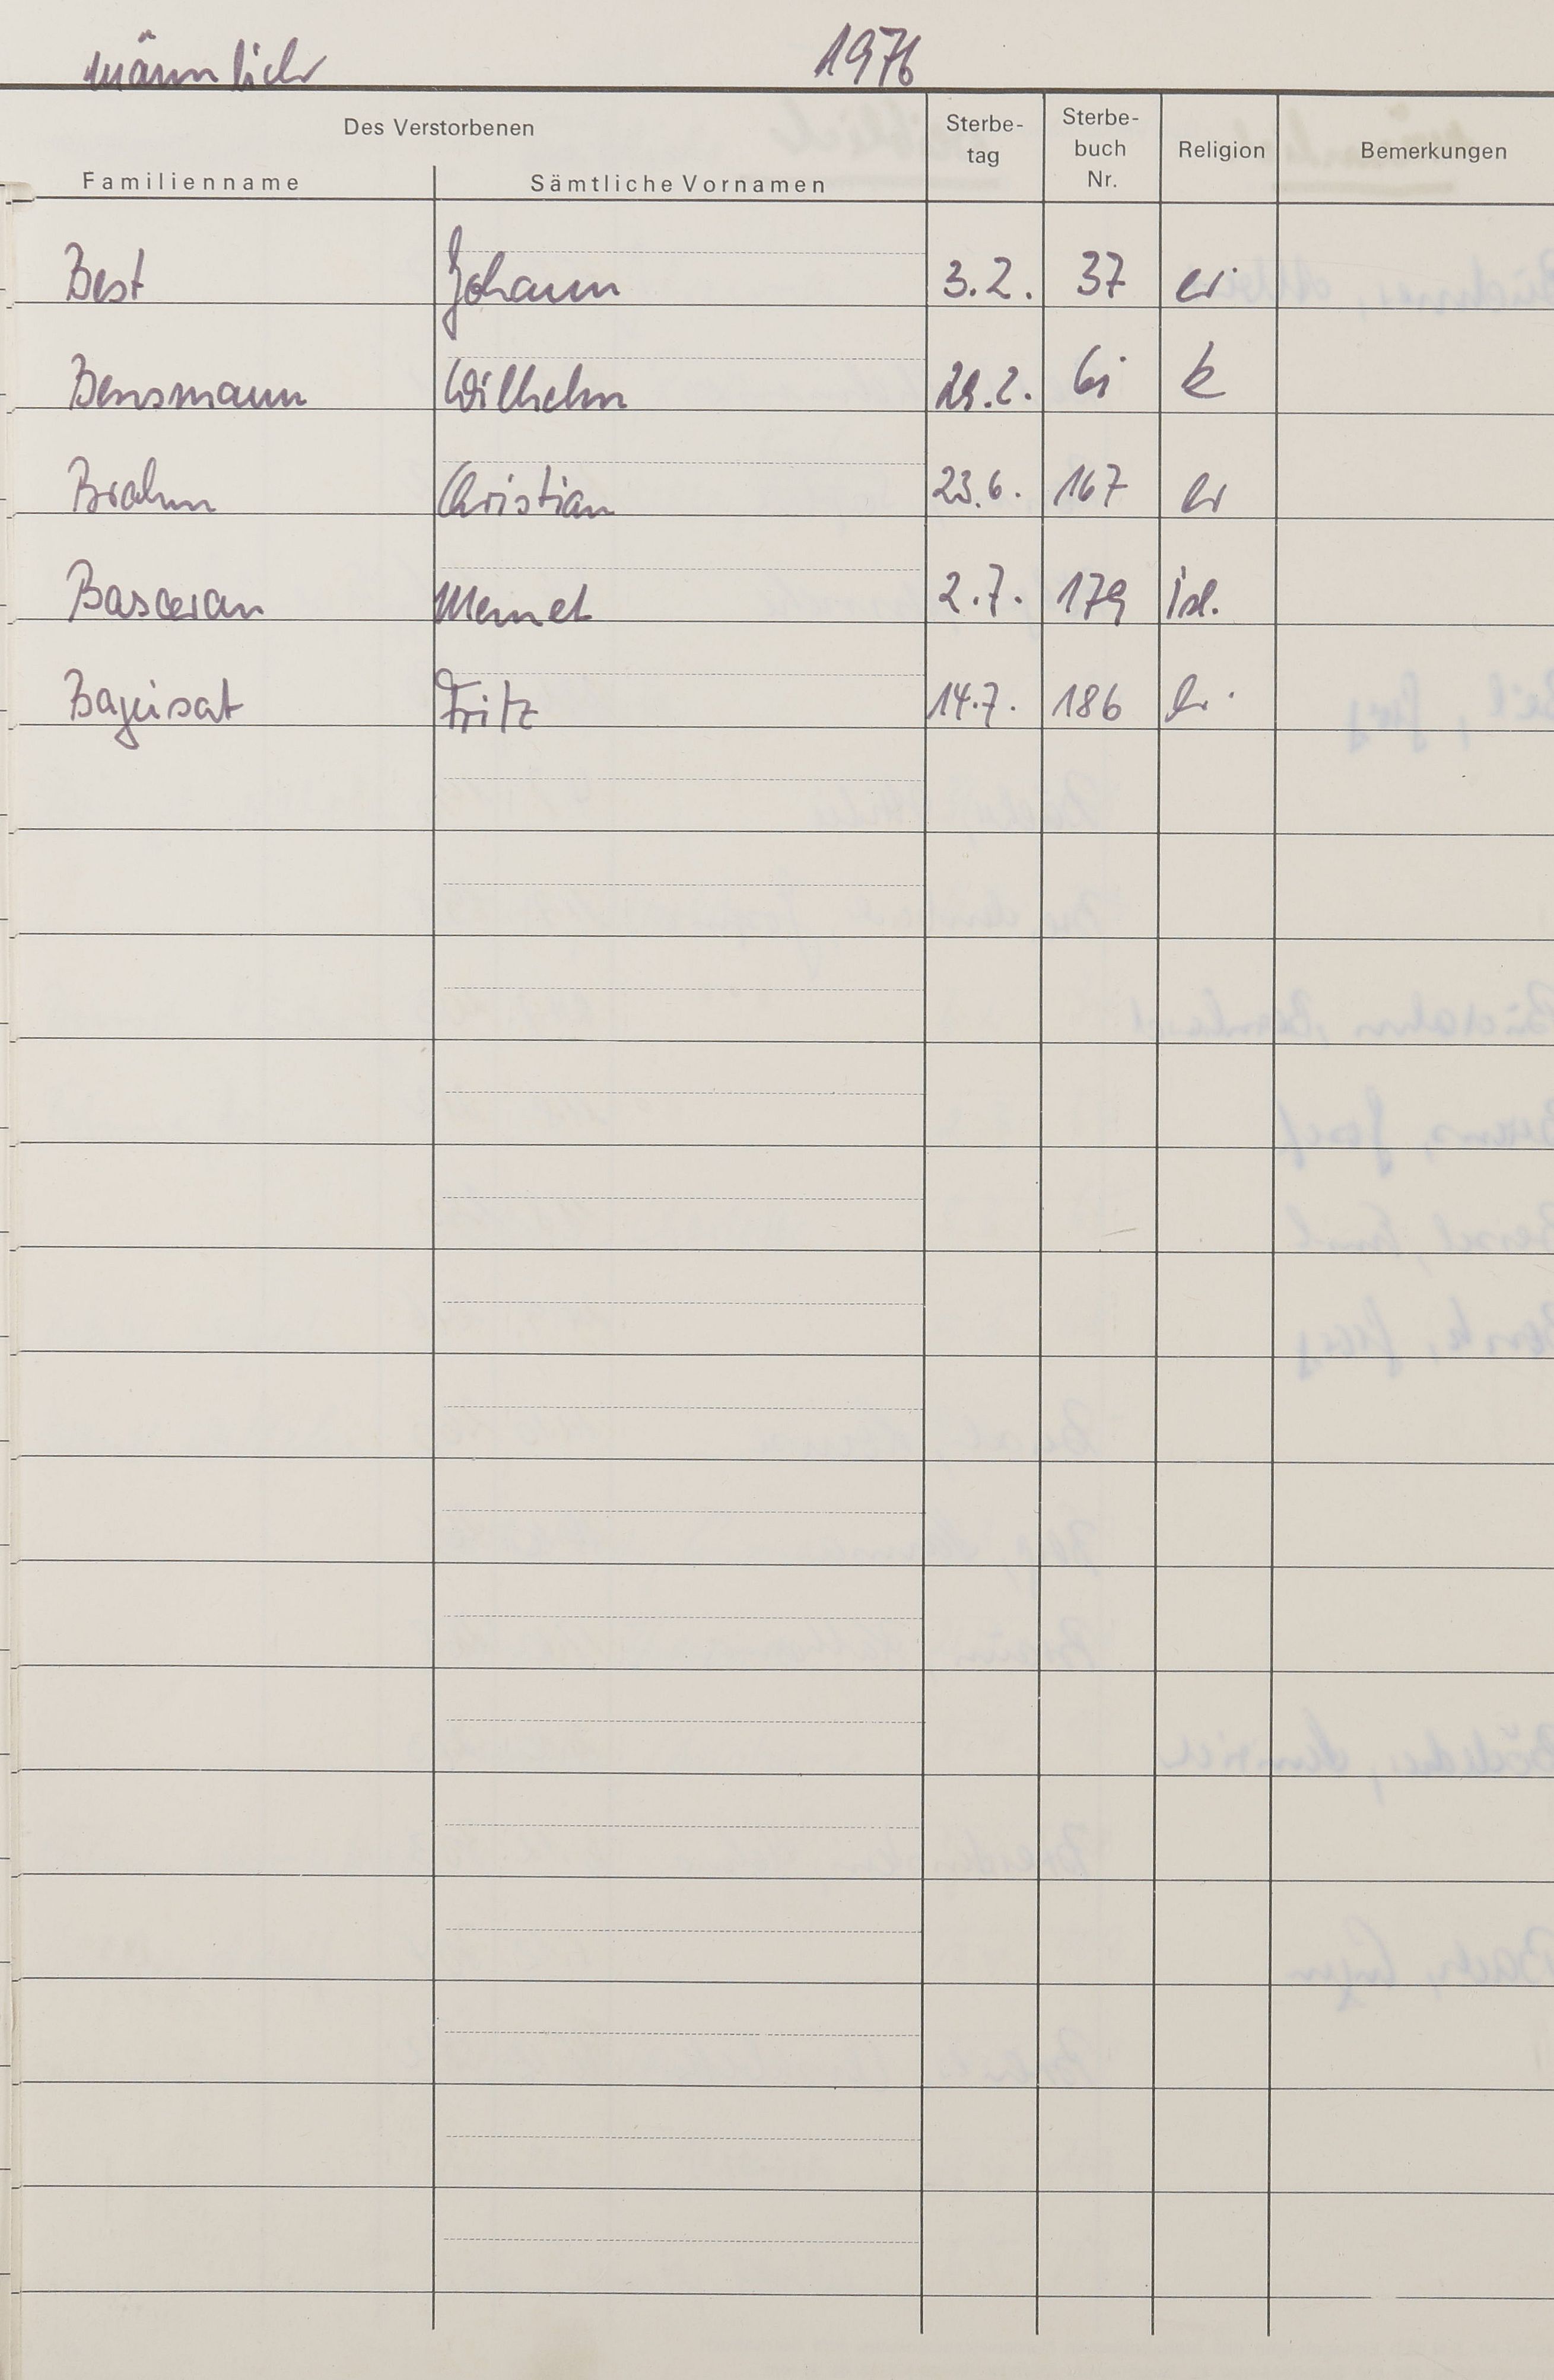 männlich 1976
Des Verstorbenen
Familienname Sämtliche Vornamen Sterbe-tag Sterbe-buch Nr. Religion Bemerkungen
Best Johann 3.2. 37 ev
Bensmann Wilhelm 29.2. k
Brahm Christian 23.6. 167 ev
Basceran Memet 2.7. 179 isl.
Fritz 14.7. 186 ev.